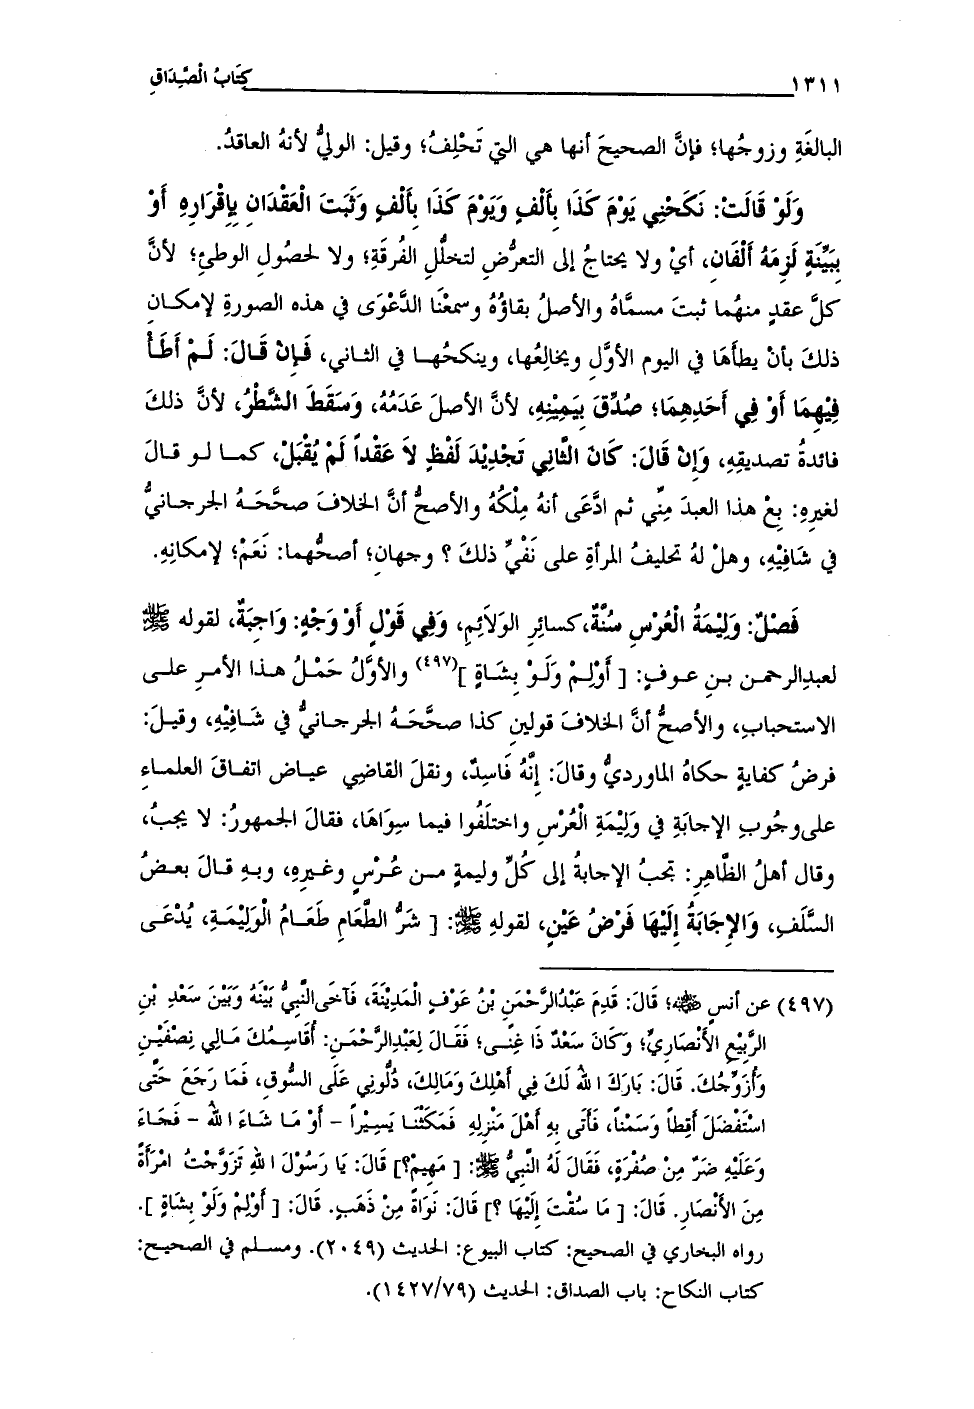 ١٣١١ كِتَابُ الْصِّدَاقِ
البالغَةِ وزوجُها؛ فإنَّ الصحيحَ أنها هي التي تَحْلِفُ؛ وقيل: الوليُّ لأنهُ العاقدُ.
وَلَوْ قَالَتْ: نَكَحَنِي يَوْمَ كَذَا بِأَلْفٍ وَيَوْمَ كَذَا بِأَلْفٍ وَثَبَتَ الْعَقْدَانِ بِإِقْرَارِهِ أَوْ
بِبَيِّنَةٍ لَزِمَهُ أَلْفَانِ، أيْ ولا يحتاجُ إلى التعرُّضِ لتخلُّلِ الفُرقَةِ؛ ولا لحصُولِ الوطئِ؛ لأنَّ
كلَّ عقدٍ منهُما ثبتَ مسمَّاهُ والأصلُ بقاؤُهُ وسمعْنَا الدَّعْوَى في هذه الصورةِ لإمكانِ
ذلكَ بأنْ يطأَهَا في اليوم الأوَّلِ ويخالِعُها، وينكحُهـا في الثاني، فَإِنْ قَالَ: لَمْ أَطَأْ
فِيهِمَا أَوْ فِي أَحَدِهِمَا؛ صُدِّقَ بِيَمِيْنِهِ، لأنَّ الأصلَ عَدَمُهُ، وَسَقَطَ الشَّطْرُ، لأنَّ ذلكَ
فائدةُ تصديقِهِ، وَإِنْ قَالَ: كَانَ الثَّانِي تَجْدِيْدَ لَفْظٍ لاَ عَقْداً لَمْ يُقْبَلْ، كمـا لـو قـالَ
لغيرِهِ: بِعْ هذا العبدَ مِنِّي ثم ادَّعَى أنهُ مِلْكُهُ والأصحُّ أنَّ الخلافَ صحَّحَـهُ الجرجـانيُّ
في شَافِيْهِ، وهلْ لهُ تحليفُ المرأةِ على نَفْيِّ ذلكَ ؟ وجهانِ؛ أصحُّهما: نَعَمْ؛ لإمكانِهِ.
فَصْلٌ: وَلِيْمَةُ الْعُرْسِ سُنَّةٌ، كسائرِ الوَلاَئِمِ، وَفِي قَوْلٍ أَوْ وَجْهٍ: وَاجِبَةٌ، لقوله ﷺ
لعبدِالرحمـن بـنِ عـوفٍ: [ أَوْلِـمْ وَلَـوْ بِشَـاةٍ ](٤٩٧) والأوَّلُ حَمْـلُ هـذا الأمـرِ علـى
الاستحبابِ، والأصحُّ أنَّ الخلافَ قولينِ كذا صحَّحَـهُ الجرجـانيُّ في شَـافِيْهِ، وقيـلَ:
فرضُ كفايةٍ حكاهُ الماورديُّ وقالَ: إِنَّهُ فَاسِدٌ، ونقلَ القاضِي عيـاض اتفـاقَ العلمـاءِ
على وجُوبِ الإجابَةِ في وَلِيْمَةِ الْعُرْسِ واختلَفُوا فيما سِوَاهَا، فقالَ الجمهورُ: لا يجبُ،
وقال أهلُ الظَّاهِرِ: تجبُ الإجابةُ إلى كُلِّ وليمةٍ مـن عُـرْسٍ وغـيرِهِ، وبـهِ قـالَ بعـضُ
السَّلَفِ، وَالإِجَابَةُ إِلَيْهَا فَرْضُ عَيْنٍ، لقولهِ ﷺ: [ شَرُّ الطَّعَامِ طَعَـامُ الْوَلِيْمَـةِ، يُدْعَـى
(٤٩٧) عن أنسٍ ﷺ؛ قَالَ: قَدِمَ عَبْدُالرَّحْمَنِ بْنُ عَوْفٍ الْمَدِيْنَةَ، فَآخَى النَّبِيُّ بَيْنَهُ وَبَيْنَ سَعْدِ بْنِ
الرَّبِيْعِ الأَنْصَارِيِّ؛ وَكَانَ سَعْدٌ ذَا غِنًـى؛ فَقَـالَ لِعَبْدِالرَّحْمَـنِ: أُقَاسِمُكَ مَـالِي نِصْفَيْـنِ
وَأُزَوِّجُكَ. قَالَ: بَارَكَ اللهُ لَكَ فِي أَهْلِكَ وَمَالِكَ، دُلُّونِي عَلَى السُّوقِ، فَمَا رَجَعَ حَتَّى
اسْتَفْضَلَ أَقِطاً وَسَمْناً، فَأَتَى بِهِ أَهْلَ مَنْزِلِهِ فَمَكَثْنَـا يَسِيْراً - أَوْ مَـا شَـاءَ اللهُ - فَجَاءَ
وَعَلَيْهِ ضَرٌ مِنْ صُفْرَةٍ، فَقَالَ لَهُ النَّبِيُّ ﷺ: [ مَهِيمْ؟] قَالَ: يَا رَسُوْلَ اللهِ تَزَوَّجْتُ امْرَأَةً
مِنَ الأَنْصَارِ. قَالَ: [ مَا سُقْتَ إِلَيْهَا ؟] قَالَ: نَوَاةً مِنْ ذَهَبٍ. قَالَ: [ أَوْلِمْ وَلَوْ بِشَاةٍ ].
رواه البخاري في الصحيح: كتاب البيوع: الحديث (٢٠٤٩). ومسلم في الصحيح:
كتاب النكاح: باب الصداق: الحديث (١٤٢٧/٧٩).